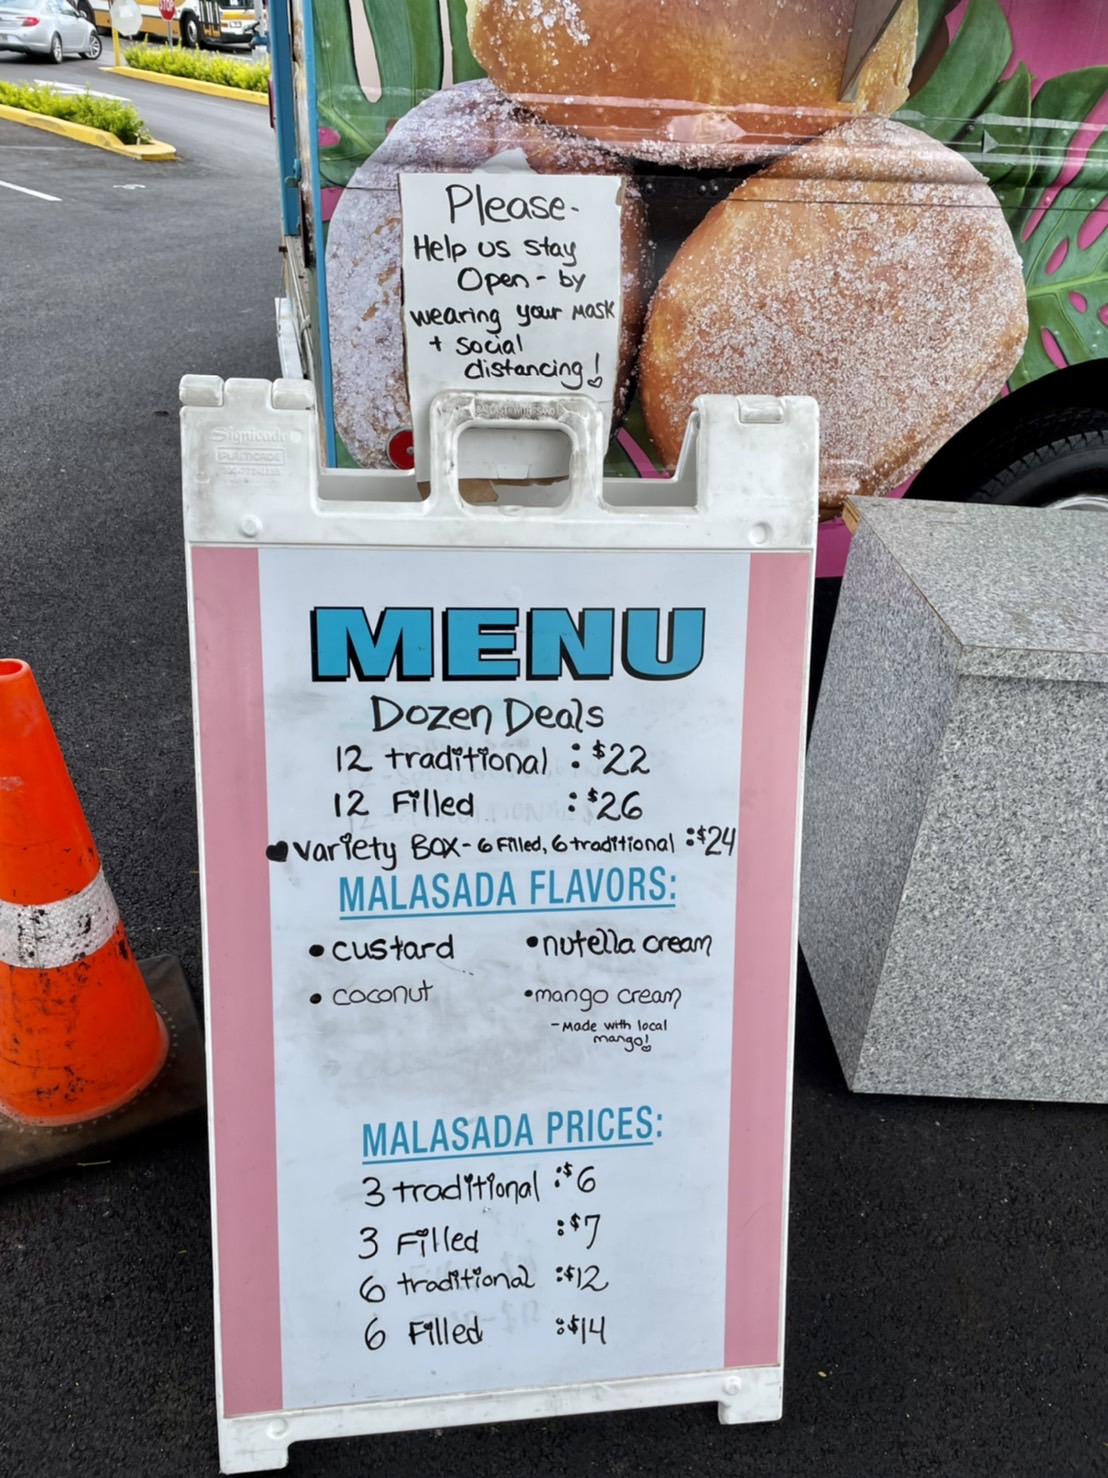 STOP
Please-
Help us stay
Open - by
wearing your mask
+ social
distancing!
Signicade
PLASTICADE
MENU
Dozen Deals
12 traditional : $22
12 Filled : $26
variety BOX - 6 Filled, 6 traditional : $24
MALASADA FLAVORS:
• custard • nutella cream
• coconut • mango cream
- Made with local
mango!
MALASADA PRICES:
3 traditional : $6
3 Filled : $7
6 traditional : $12
6 Filled : $14